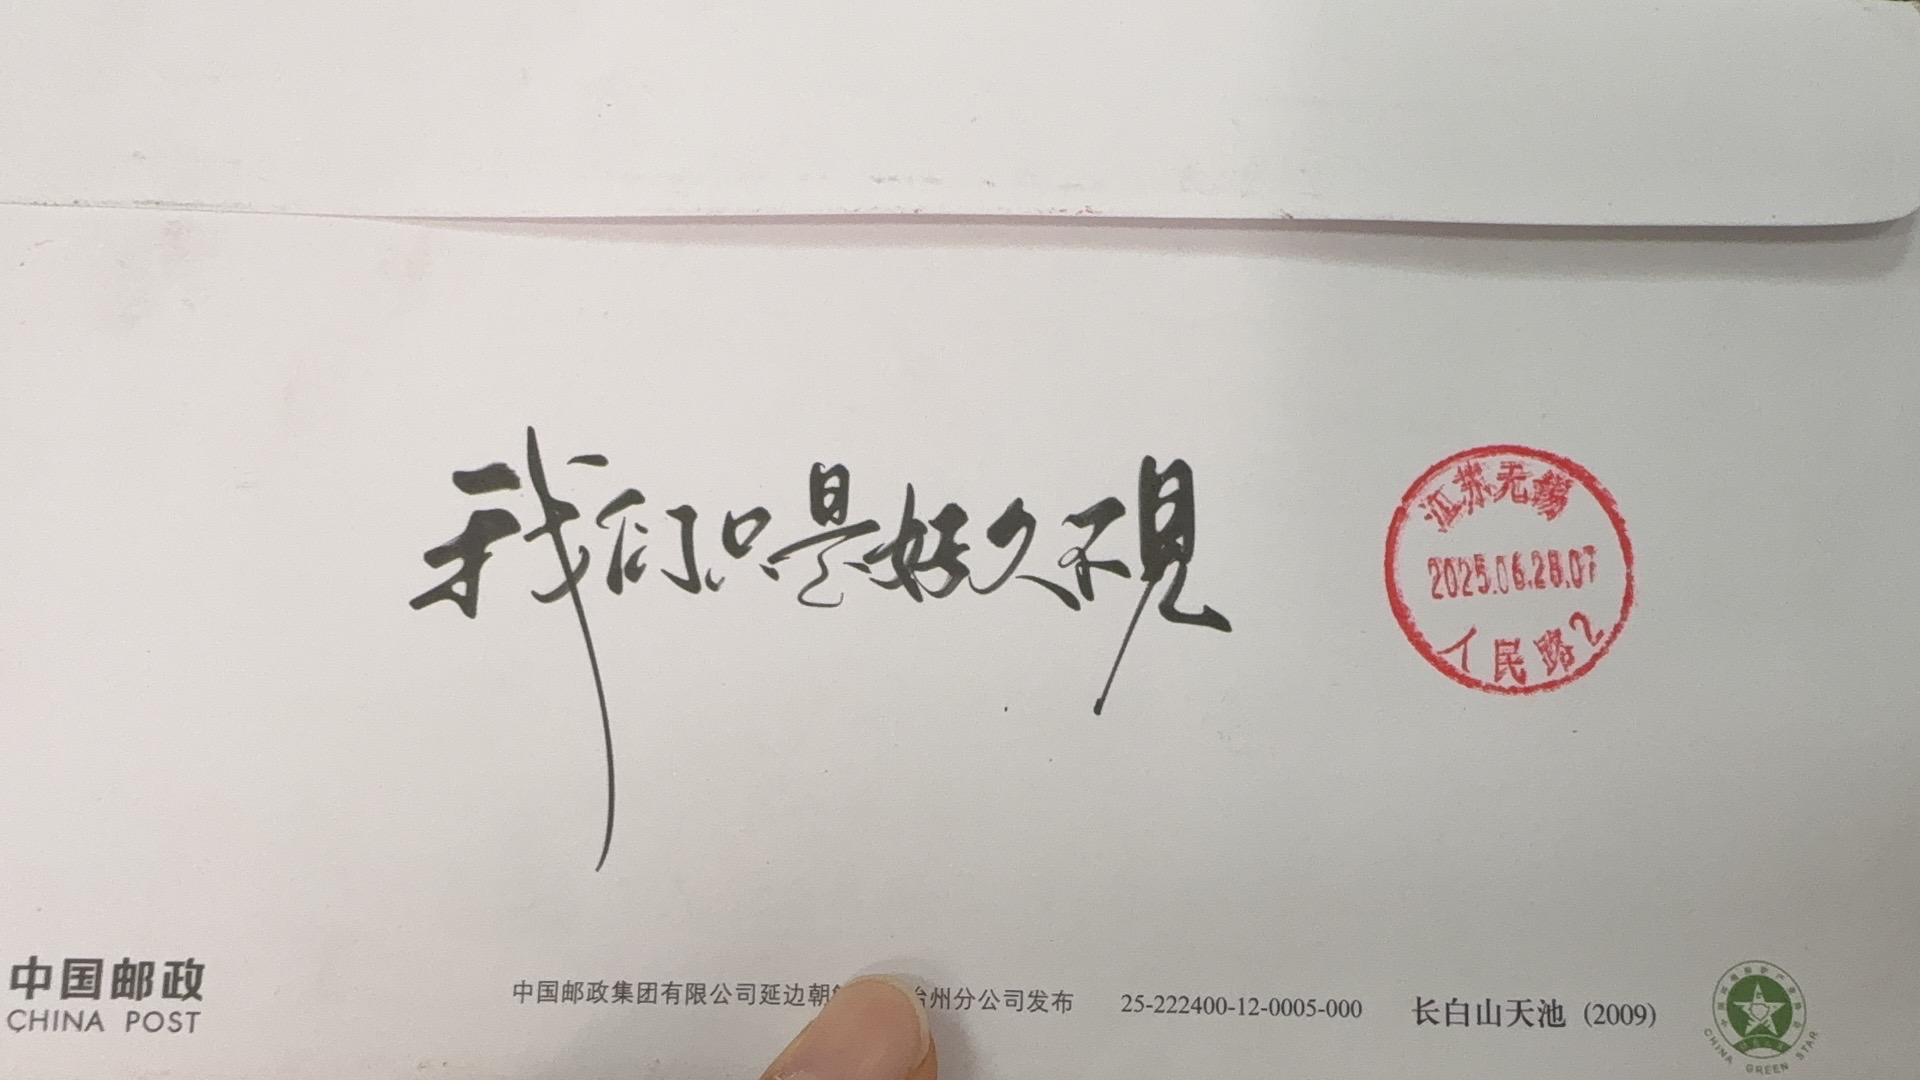 我们只是好久不見
江苏无锡
2025.06.28.07
人民路2
中国邮政
CHINA POST
中国邮政集团有限公司延边朝 州分公司发布 25-222400-12-0005-000 长白山天池 (2009)
CHINA GREEN STAR